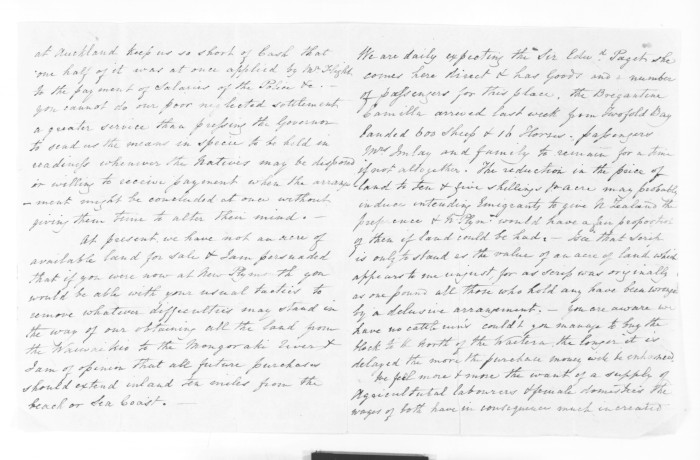 at Auckland keep us so short of Cash that
one half of it was at once applied by Mr Flight
to the payment of Salaries of the Police &c. –
you cannot do our poor neglected settlement
a greater service than pressing the Governor
to send us the means in specie to be held in
readiness whenever the Natives may be disposed
or willing to receive payment when the arrange
-ment might be concluded at once without
giving them time to alter their mind. –
At present, we have not an acre of
available land for sale & I am persuaded
that if you were now at New Plymouth you
would be able with your usual tactics to
remove whatever difficulties may stand in
the way of our obtaining all the land from
the to the River &
I am of opinion that all future purchases
should extend inland ten miles from the
beach or Sea Coast. –
We are daily expecting the Sir Edwd. Paget she
comes here direct & has Goods and a number
of passengers for this place, the Brigantine
Camilla arrived last week from Twofold Bay
landed 600 Sheep & 16 Horses. passengers
Mrs Imlay and family to remain for a time
if not altogether. The reduction in the price of
land to ten & five shillings acre may probably
induce intending Emigrants to give N Zealand the
preference & N. Plym. would have a fair proportion
of them if land could be had; – that scrip
is only to stand as the value of an acre of land which
appears to me unjust for as scrip was originally
as one pound all those who hold any have been wronged
by a delusive arrangement. – You are aware we
have no cattle runs couldn't you manage to buy the
block to North of the Waitera the longer it is
delayed the more the purchase money will be enhanced.
We feel more & more the want of a supply of
Agricultural labourers & female domestics the
wages of both have in consequence much increased